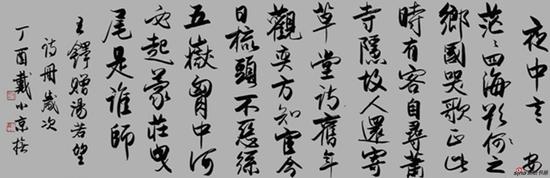 夜中
茫〻四海欲何之
鄉國哭歌正此
時有客自尋蕭
寺隱故人還寄
草堂詩舊年
觀奕方知官今
日梳頭不惡絲
五嶽胸中何
必起蒙莊曳
尾是誰師
王鐸贈湯若望
詩冊歲次
丁酉戴小京